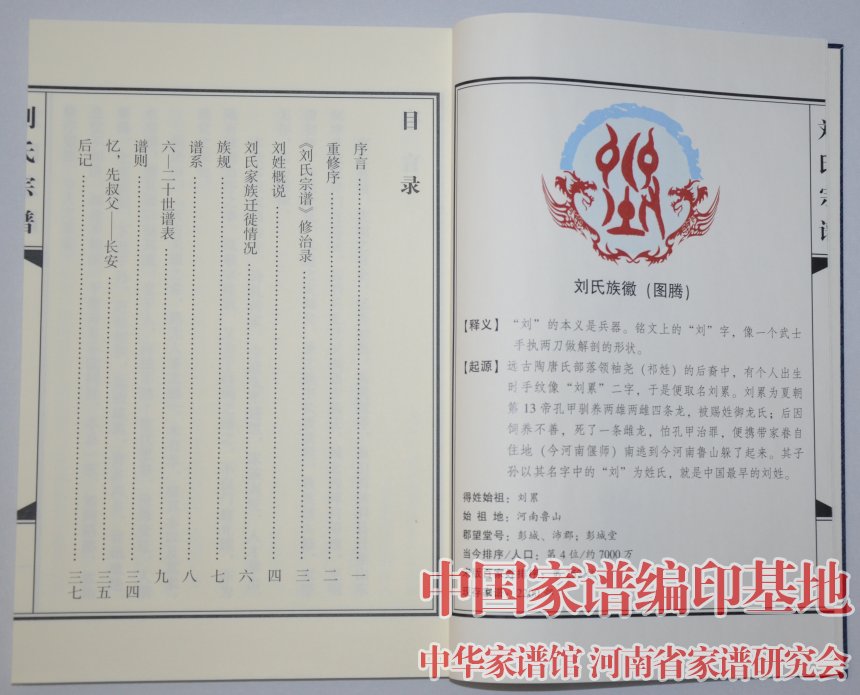 目录
序言……一
重修序……二
《刘氏宗谱》修治录……三
刘姓概说……四
刘氏家族迁徙情况……六
族规……七
谱系……八
六—二十世谱表……九
谱则……三四
忆,先叔父——长安……三五
后记……三七
刘氏宗谱
刘氏族徽(图腾)
【释义】“刘”的本义是兵器。铭文上的“刘”字,像一个武士
手执两刀做解剖的形状。
【起源】远古陶唐氏部落领袖尧(祁姓)的后裔中,有个人出生
时手纹像“刘累”二字,于是便取名刘累。刘累为夏朝
第13帝孔甲驯养两雄两雌四条龙,被赐姓御龙氏;后因
饲养不善,死了一条雌龙,怕孔甲治罪,便携带家眷自
住地(今河南偃师)南逃到今河南鲁山躲了起来。其子
孙以其名字中的“刘”为姓氏,就是中国最早的刘姓。
得姓始祖:刘累
始祖地:河南鲁山
郡望堂号:彭城、沛郡;彭城堂
当今排序/人口:第4位/约7000万
刘氏宗谱
中国家谱编印基地
中华家谱馆 河南省家谱研究会